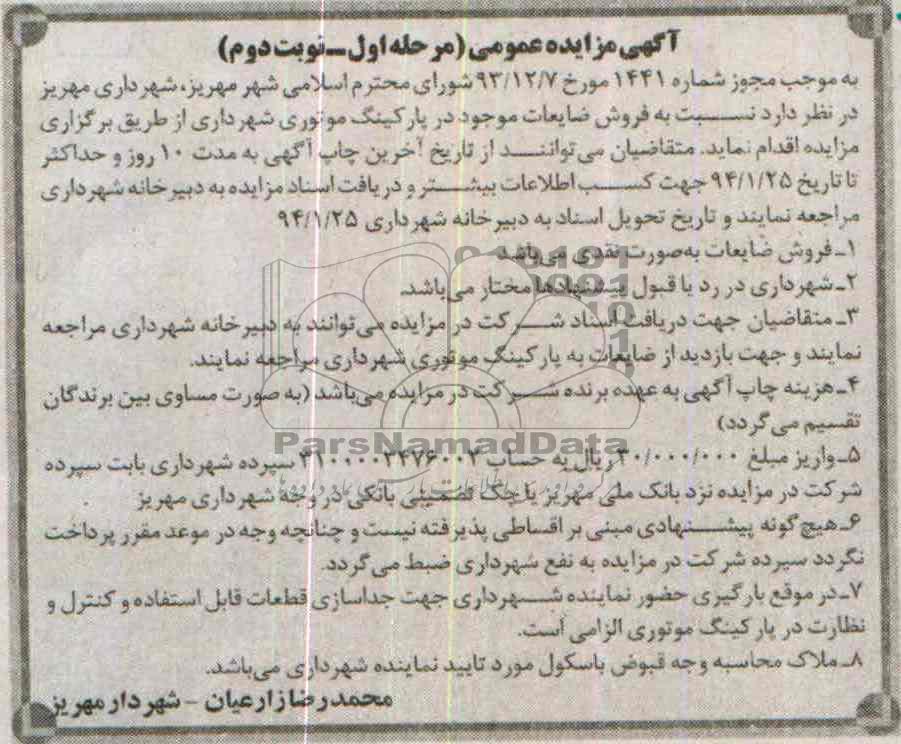 آگهی مزایده عمومی (مرحله اول ـ نوبت دوم)
به موجب مجوز شماره ۱۴۴۱ مورخ ۹۳/۱۲/۷ شورای محترم اسلامی شهر مهریز، شهرداری مهریز
در نظر دارد نسبت به فروش ضایعات موجود در پارکینگ موتوری شهرداری از طریق برگزاری
مزایده اقدام نماید. متقاضیان می‌توانند از تاریخ آخرین چاپ آگهی به مدت ۱۰ روز و حداکثر
تا تاریخ ۹۴/۱/۲۵ جهت کسب اطلاعات بیشتر و دریافت اسناد مزایده به دبیرخانه شهرداری
مراجعه نمایند و تاریخ تحویل اسناد به دبیرخانه شهرداری ۹۴/۱/۲۵
۱ـ فروش ضایعات به‌صورت نقدی می‌باشد
۲ـ شهرداری در رد یا قبول پیشنهادها مختار می‌باشد.
۳ـ متقاضیان جهت دریافت اسناد شرکت در مزایده می‌توانند به دبیرخانه شهرداری مراجعه
نمایند و جهت بازدید از ضایعات به پارکینگ موتوری شهرداری مراجعه نمایند.
۴ـ هزینه چاپ آگهی به عهده برنده شرکت در مزایده می‌باشد (به صورت مساوی بین برندگان
تقسیم می‌گردد)
ParsNamadData
۵ـ واریز مبلغ ۳۰/۰۰۰/۰۰۰ ریال به حساب ۳۱۰۰۰۰۲۴۷۶۰۰۲ سپرده شهرداری بابت سپرده
شرکت در مزایده نزد بانک ملی مهریز یا چک تضمینی بانکی در وجه شهرداری مهریز
۶ـ هیچ گونه پیشنهادی مبنی بر اقساطی پذیرفته نیست و چنانچه وجه در موعد مقرر پرداخت
نگردد سپرده شرکت در مزایده به نفع شهرداری ضبط می‌گردد.
۷ـ در موقع بارگیری حضور نماینده شهرداری جهت جداسازی قطعات قابل استفاده و کنترل و
نظارت در پارکینگ موتوری الزامی است.
۸ـ ملاک محاسبه وجه قبوض باسکول مورد تایید نماینده شهرداری می‌باشد.
محمدرضا زارعیان - شهردار مهریز